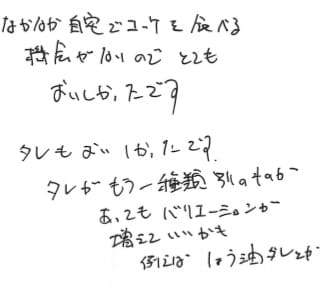 なかなか自宅でユッケを食べる
機会がないのでとても
おいしかったです
タレもおいしかったです。
タレがもう一種類別のものが
あってもバリエーションが
増えていいかも
例えばしょう油タレとか